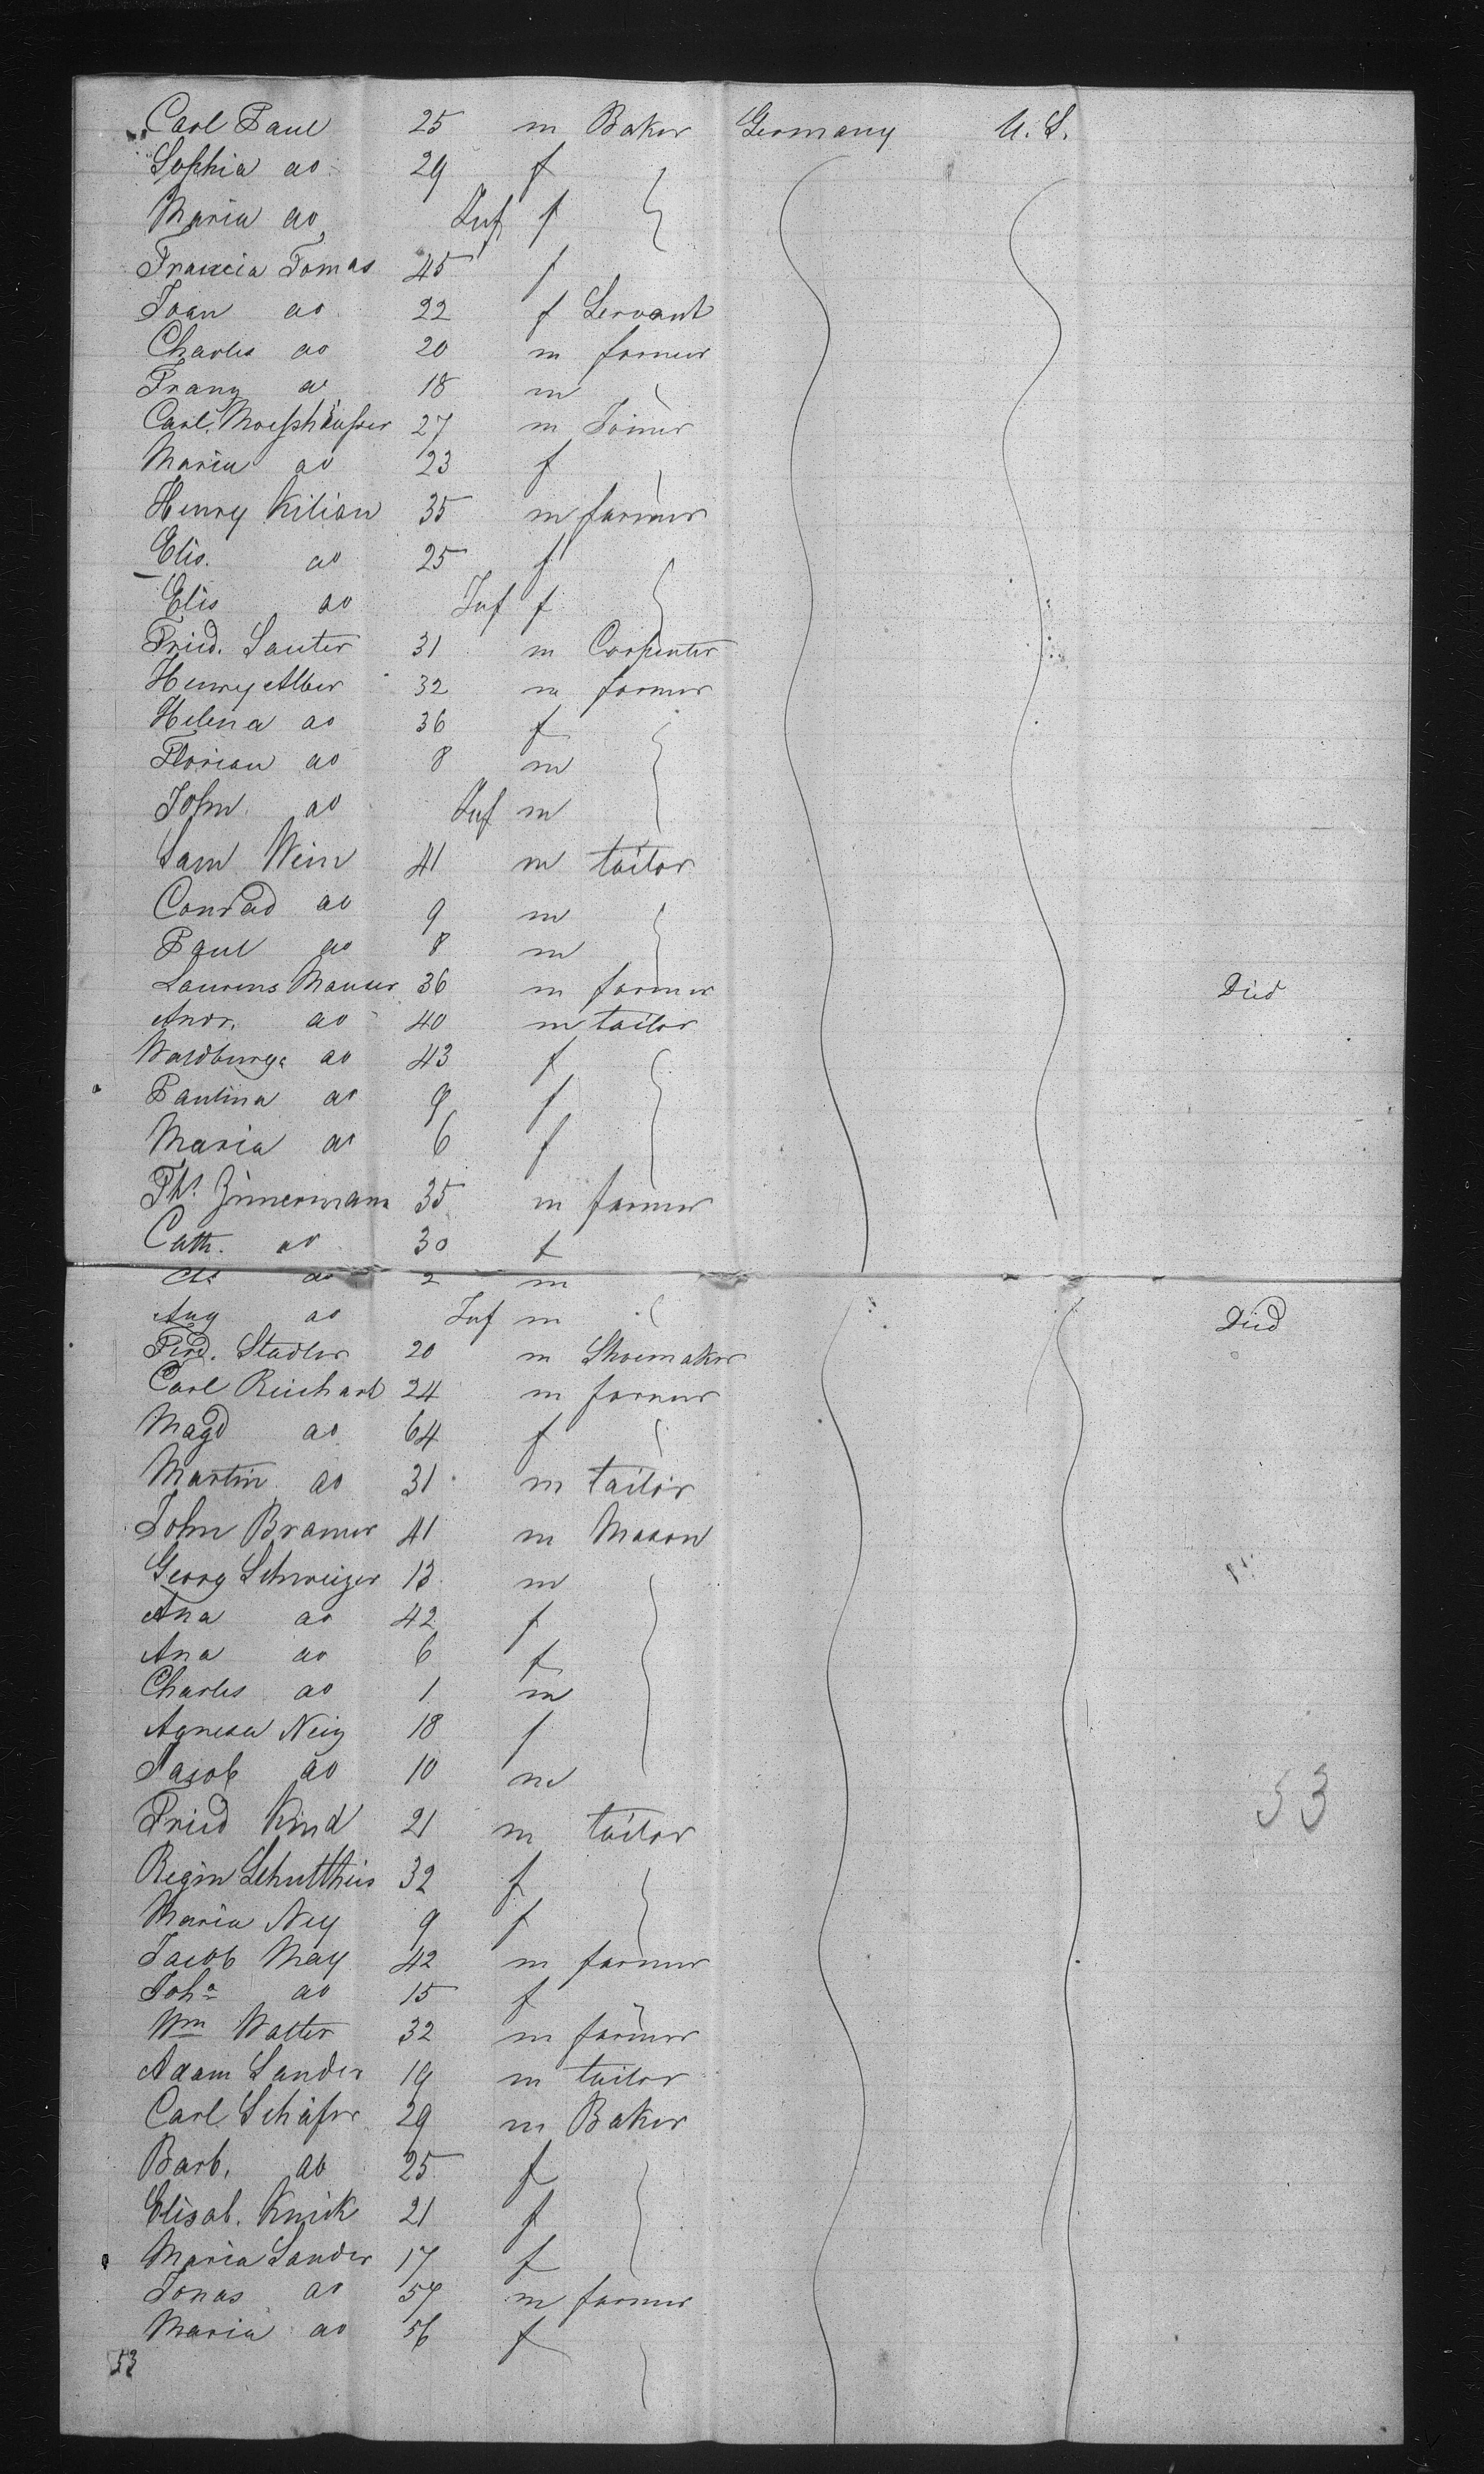 Carl Paul 25 m Baker Germany U. S.
Sophia do 29 f
Maria do Inf f
Francia Tomas 45 f
Joan do 22 f Servant
Charles do 20 m farmer
Franz do 18 m
Carl 27 m Joiner
Maria do 23 f
Henry Kilian 35 m farmer
Elis. do 25 f
Elis do Inf f
Fried. Sauter 31 m Carpenter
Henry Alber 32 m farmer
Helena do 36 f
Florian do 8 m
John do Inf m
Sam Wein 41 m tailor
Conrad do 9 m
Paul do 8 m
Laurens Mauer 36 m farmer Died
Andr. do 40 m tailor
Waldburga do 43 f
Paulina do 9 f
Maria do 6 f
Ths. Zimermann 35 m farmer
Cath. do 30 f
do 2 m
Aug do Inf m Died
Ferd. Stadler 20 m Shoemaker
Carl Reichart 24 m farmer
Magd do 64 f
Martin do 31 m tailor
John Bramer 41 m Mason
Georg Schweizer 13 m
Ana do 42 f
Ana do 6 f
Charles do 1 m
Agnesa Neig 18 f
Jacob do 10 m
53
Fried Kind 21 m tailor
Regin Schultheis 32 f
Maria Ney 9 f
Jacob May 42 m farmer
Joha do 15 f
Wm Walter 32 m farmer
Adam Sander 19 m tailor
Carl Schäfer 29 m Baker
Barb. do 25 f
Elisab. Knick 21 f
Maria Sander 17 f
Jonas do 57 m farmer
Maria do 56 f
53